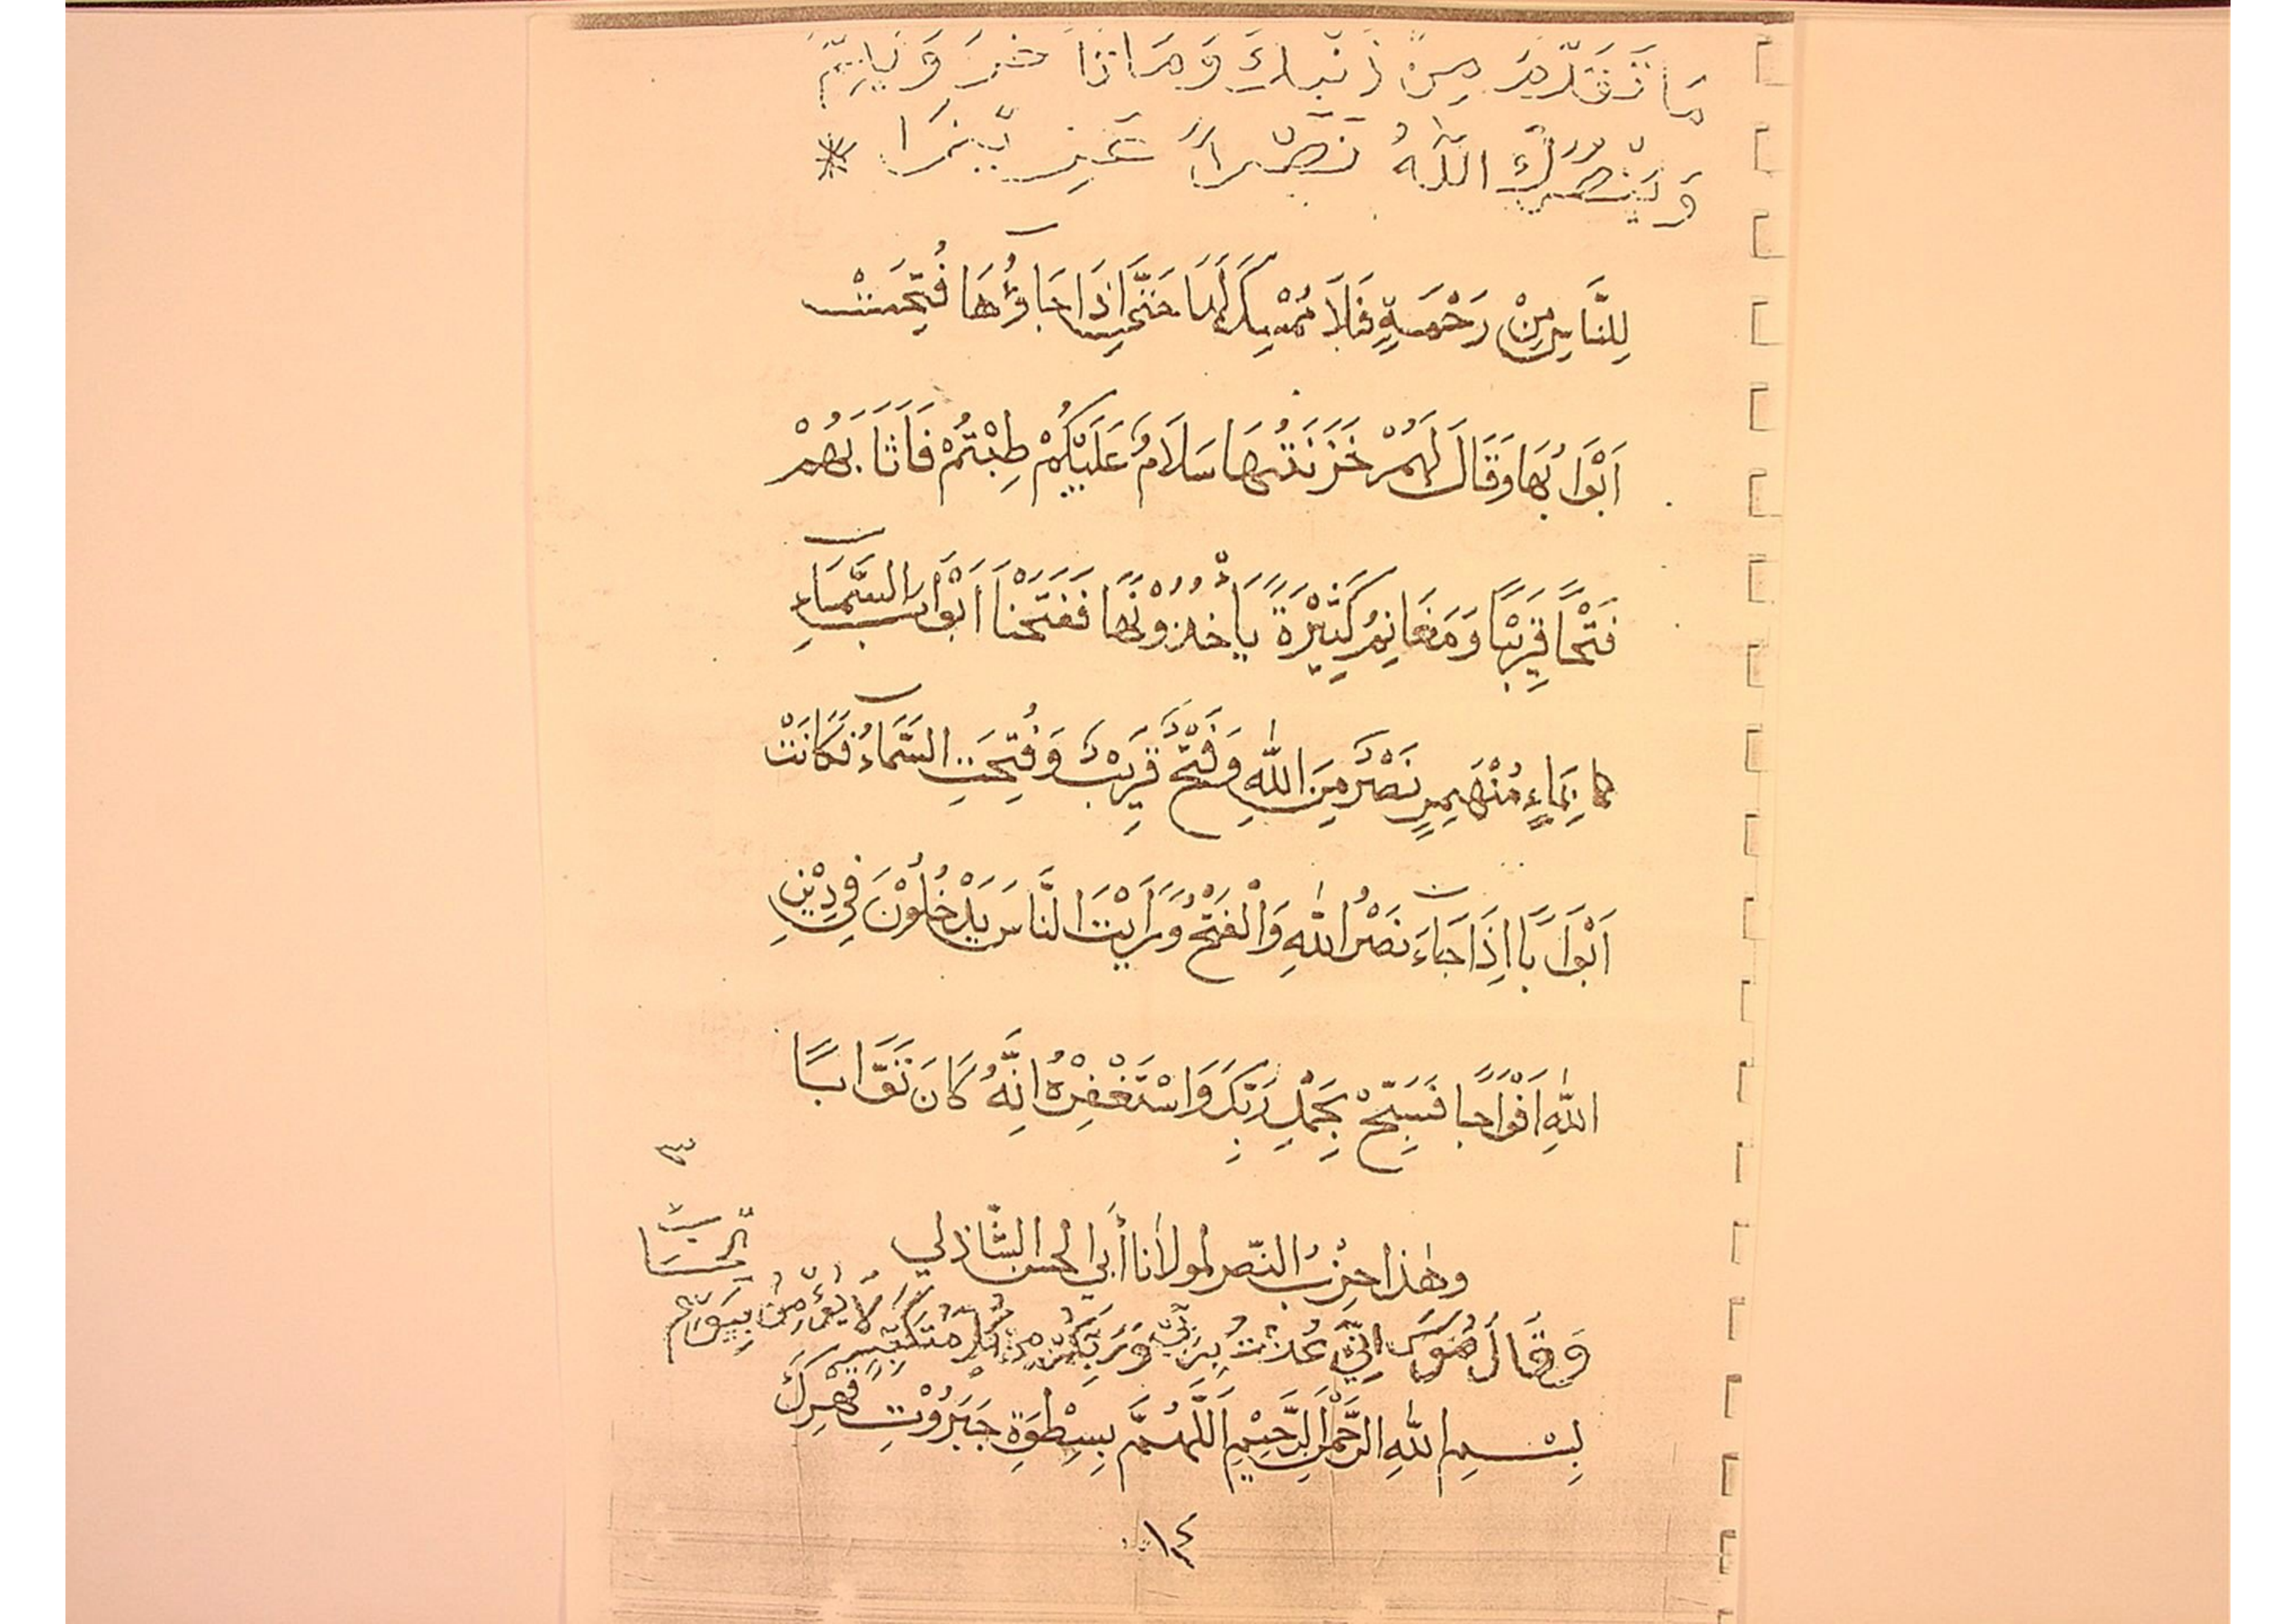 مَا تَقَدَّمَ مِنْ ذَنْبِكَ وَمَا تَأَخَّرَ وَيُتِمَّ
وَيَنْصُرَكَ اللّٰهُ نَصْرًا عَزِيْزًا *
لِلنَّاسِ مِنْ رَحْمَةٍ فَلَا مُمْسِكَ لَهَا حَتَّى اِذَا جَاؤُهَا فُتِحَتْ
اَبْوَابُهَا وَقَالَ لَهُمْ خَزَنَتُهَا سَلَامٌ عَلَيْكُمْ طِبْتُمْ فَاَثَابَهُمْ
فَتْحًا قَرِيْبًا وَمَغَانِمَ كَثِيْرَةً يَأْخُذُوْنَهَا فَفَتَحْنَا اَبْوَابَ السَّمَاءِ
كما بِمَاءٍ مُنْهَمِرٍ نَصْرٌ مِنَ اللّٰهِ وَفَتْحٌ قَرِيْبٌ وَفُتِحَتِ السَّمَاءُ فَكَانَتْ
اَبْوَابًا اِذَا جَاءَ نَصْرُ اللّٰهِ وَالْفَتْحُ وَرَاَيْتَ النَّاسَ يَدْخُلُوْنَ فِي دِيْنِ
اللّٰهِ اَفْوَاجًا فَسَبِّحْ بِحَمْدِ رَبِّكَ وَاسْتَغْفِرْهُ اِنَّهُ كَانَ تَوَّابًا
وهٰذا حِزْبُ النّصر لمولانا أبي الحسن الشّاذلي
وَقَالَ مُوسَى اِنِّي عُذْتُ بِرَبِّي وَرَبِّكُمْ مِنْ كُلِّ مُتَكَبِّرٍ لَا يُؤْمِنُ بِيَوْمِ
الْحِسَابِ
بِسْمِ اللّٰهِ الرَّحْمٰنِ الرَّحِيْمِ اَللّٰهُمَّ بِسِطْوَةِ جَبَرُوْتِ قَهْرِكَ
١٤